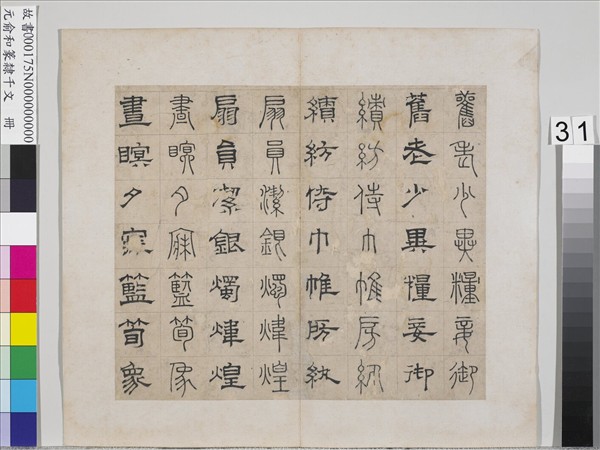 舊老少異糧妾御
舊老少異糧妾御
績紡侍巾帷房紈
績紡侍巾帷房紈
扇員潔銀燭煒煌
扇員潔銀燭煒煌
晝瞑夕寐籃筍像
晝瞑夕寐籃筍象
故書000175N000000000
元俞和篆隸千文 冊
31